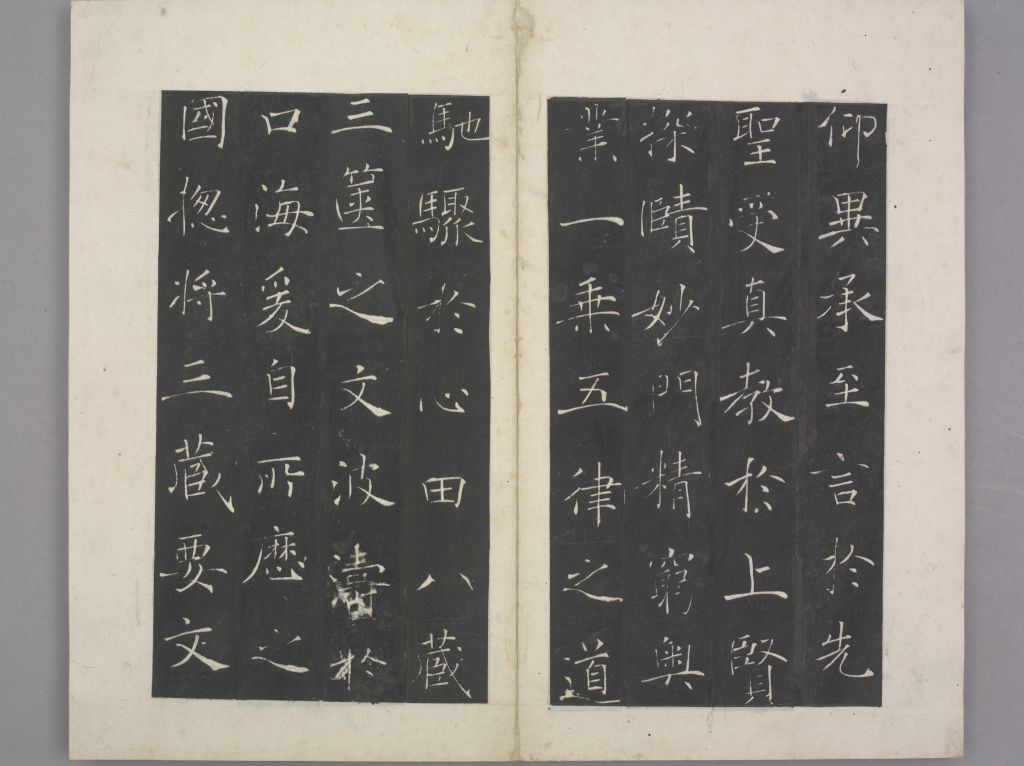 仰異承至言於先
聖受真教於上賢
探賾妙門精窮奥
業一乗五律之道
馳驟於心田八藏
三篋之文波濤於
口海爰自所歷之
國揔将三藏要文